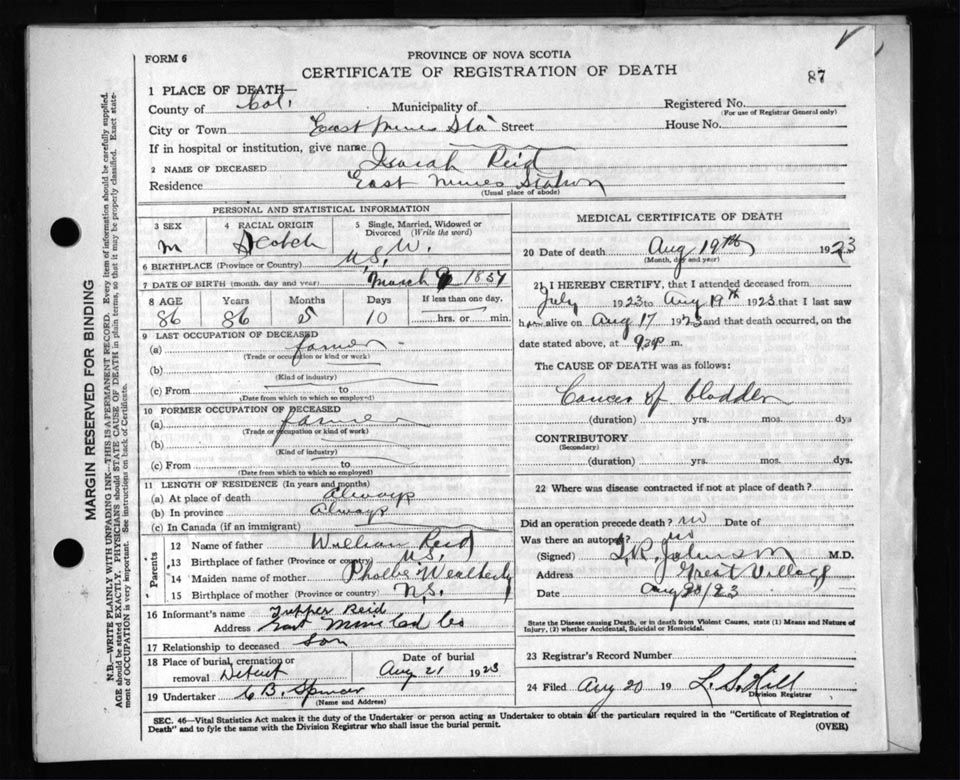 FORM 6
PROVINCE OF NOVA SCOTIA
CERTIFICATE OF REGISTRATION OF DEATH
87
1 PLACE OF DEATH—
County of Col. Municipality of
City or Town East Mines Sta Street
If in hospital or institution, give name
2 NAME OF DECEASED Isaiah Reid
Residence East Mines Station
(Usual place of abode)
Registered No.
(For use of Registrar General only)
House No.
PERSONAL AND STATISTICAL INFORMATION
3 SEX
M
4 RACIAL ORIGIN
Scotch
5 Single, Married, Widowed or Divorced (Write the word)
W.
6 BIRTHPLACE (Province or Country) N.S.
7 DATE OF BIRTH (month, day and year) March 9 1837
8 AGE Years Months Days If less than one day,
86 86 5 10 hrs. or min.
9 LAST OCCUPATION OF DECEASED
(a) farmer
(Trade or occupation or kind or work)
(b)
(Kind of industry)
(c) From to
(Date from which to so employed)
10 FORMER OCCUPATION OF DECEASED
(a) farmer
(Trade or occupation or kind of work)
(b)
(Kind of industry)
(c) From to
(Date from which to so employed)
11 LENGTH OF RESIDENCE (In years and months)
(a) At place of death always
(b) In province always
(c) In Canada (if an immigrant)
Parents
12 Name of father William Reid
13 Birthplace of father (Province or country) N.S.
14 Maiden name of mother Phoebe Weatherby
15 Birthplace of mother N.S.
16 Informant's name Tupper Reid
Address East Mines Col Co
17 Relationship to deceased Son
18 Place of burial, cremation or removal Debert
Date of burial
Aug 21 1923
19 Undertaker C B. Spencer
(Name and Address)
MEDICAL CERTIFICATE OF DEATH
20 Date of death Aug 19th 1923
(Month, day and year)
21 I HEREBY CERTIFY, that I attended deceased from
July 1923 to Aug 19th 1923 that I last saw
him alive on Aug 17 1923 and that death occurred, on the
date stated above, at 930p m.
The CAUSE OF DEATH was as follows:
Cancer of bladder
(duration) yrs. mos. dys
CONTRIBUTORY
(Secondary)
(duration) yrs. mos. dys.
22 Where was disease contracted if not at place of death?
Did an operation precede death? no Date of
Was there an autopsy? no
(Signed) T.R. Johnson M.D.
Address Great Village
Date Aug 20/23
State the Disease causing Death, or in death from Violent Causes, state (1) Means and Nature of
Injury, (2) whether Accidental, Suicidal or Homicidal.
23 Registrar's Record Number
24 Filed Aug 20 19 L. S. Hill
Division Registrar
SEC. 46—Vital Statistics Act makes it the duty of the Undertaker or person acting as Undertaker to obtain all the particulars required in the "Certificate of Registration of
Death" and to fyle the same with the Division Registrar who shall issue the burial permit.
(OVER)
MARGIN RESERVED FOR BINDING
N.B.—WRITE PLAINLY WITH UNFADING INK—THIS IS A PERMANENT RECORD. Every item of information should be carefully supplied.
AGE should be stated EXACTLY. PHYSICIANS should STATE CAUSE OF DEATH in plain terms, so that it may be properly classified. Exact state-
ment of OCCUPATION is very important. See instructions on back of Certificate.